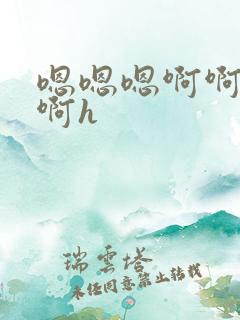 嗯嗯嗯啊啊
啊h
瑞雲塔
未经同意禁止转载